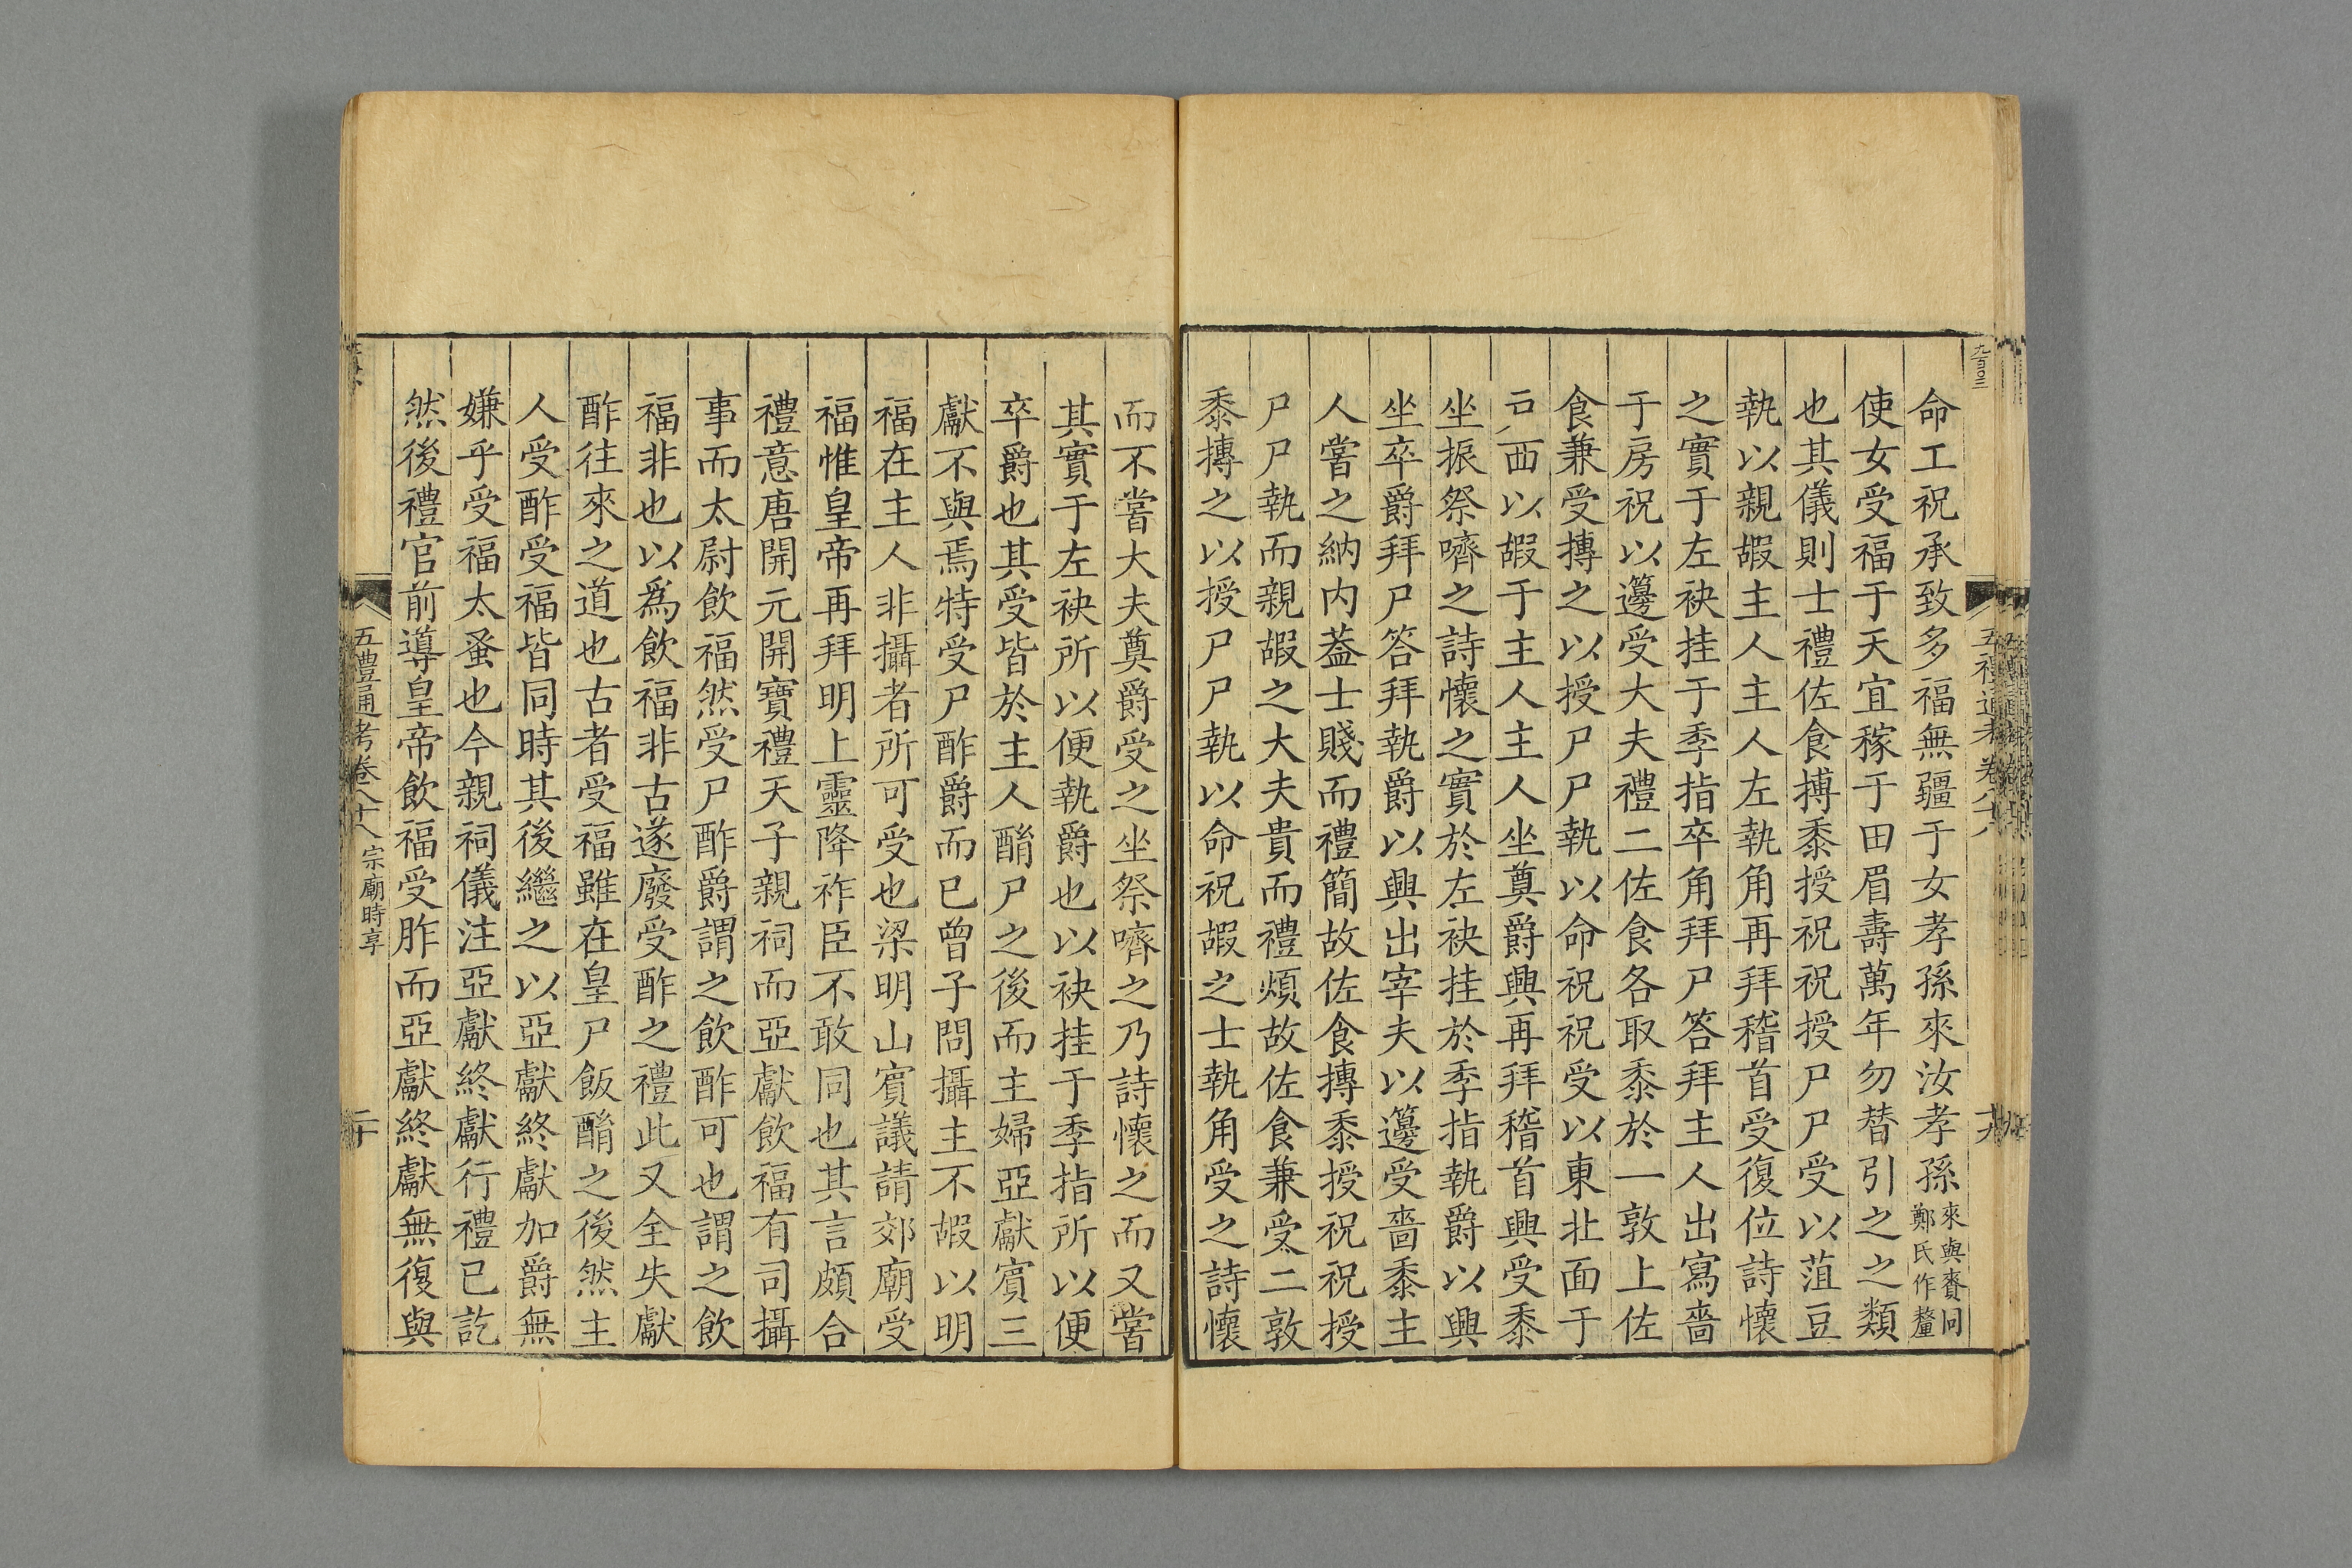 命工祝承致多福無疆于女孝孫來汝孝孫來與賚同鄭氏作釐
使女受福于天宜稼于田眉壽萬年勿替引之之類
也其儀則士禮佐食摶黍授祝祝授尸尸受以菹豆
執以親嘏主人主人左執角再拜稽首受復位詩懷
之實于左袂挂于季指卒角拜尸答拜主人出寫嗇
于房祝以籩受大夫禮二佐食各取黍於一敦上佐
食兼受摶之以授尸尸執以命祝祝受以東北面于
西以嘏于主人主人坐奠爵興再拜稽首興受黍
坐振祭嚌之詩懷之實於左袂挂於季指執爵以興
坐卒爵拜尸答拜執爵以興出宰夫以籩受嗇黍主
人嘗之納内葢士賤而禮簡故佐食摶黍授祝祝授
尸尸執而親嘏之大夫貴而禮煩故佐食兼受二敦
黍摶之以授尸尸執以命祝嘏之士執角受之詩懷
而不嘗大夫奠爵受之坐祭嚌之乃詩懷之而又嘗
其實于左袂所以便執爵也以袂挂于季指所以便
卒爵也其受皆於主人酳尸之後而主婦亞獻賓三
獻不與焉特受尸酢爵而已曾子問攝主不嘏以明
福在主人非攝者所可受也梁明山賓議請郊廟受
福惟皇帝再拜明上靈降祚臣不敢同也其言頗合
禮意唐開元開寶禮天子親祠而亞獻飲福有司攝
事而太尉飲福然受尸酢爵謂之飲酢可也謂之飲
福非也以爲飲福非古遂廢受酢之禮此又全失獻
酢往來之道也古者受福雖在皇尸飯酳之後然主
人受酢受福皆同時其後繼之以亞獻終獻加爵無
嫌乎受福太蚤也今親祠儀注亞獻終獻行禮已訖
然後禮官前導皇帝飲福受胙而亞獻終獻無復與
五禮通考卷八十八 宗廟時享 二十